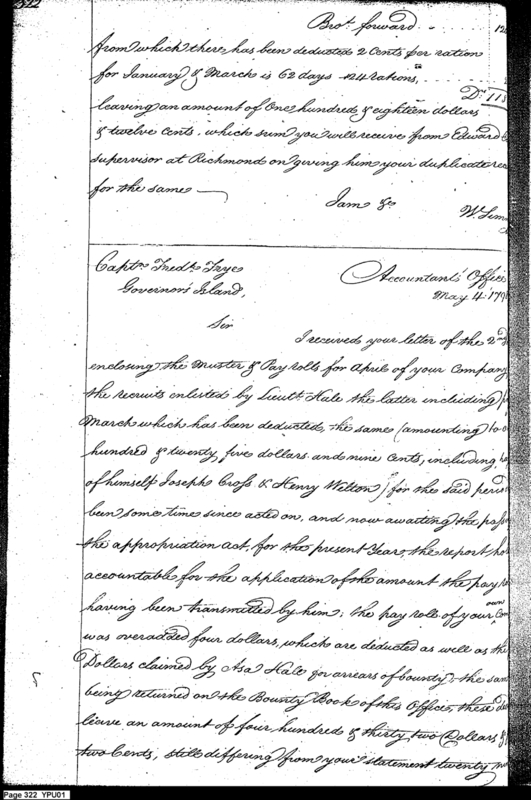 322
Brot. forward
from which there has been deducted 2 Cents per ration
for January & March is 62 days 124 rations,
Dr. 118
leaving an amount of One hundred & eighteen dollars
& twelve Cents. which sum you will receive from Edward
supervisor at Richmond on giving him your duplicate
for the same
I am &c
W. Sim
Captn. Fredk. Frye
Governor's Island,
Accountant's Office
May 4. 179
Sir
I received your letter of the 2nd
enclosing the Muster & Pay rolls for April of your Company
the recruits enlisted by Lieutt. Hale the latter including
March which has been deducted, the same (amounting to
hundred & twenty five dollars and nine Cents, including
of himself Joseph Cross & Henry Welton) for the said period
been some time since acted on, and now awaiting the
the appropriation act, for the present Year, the report
accountable for the application of the amount the pay
having been transmitted by him; the pay roll of your own
was overadded four dollars, which are deducted as well as the
Dollars claimed by Asa Hale for arrears of bounty, the
being returned on the Bounty Book of this Office, these
leave an amount of four hundred & thirty two Dollars &
two Cents, still differing from your statement twenty
Page 322 YPU01